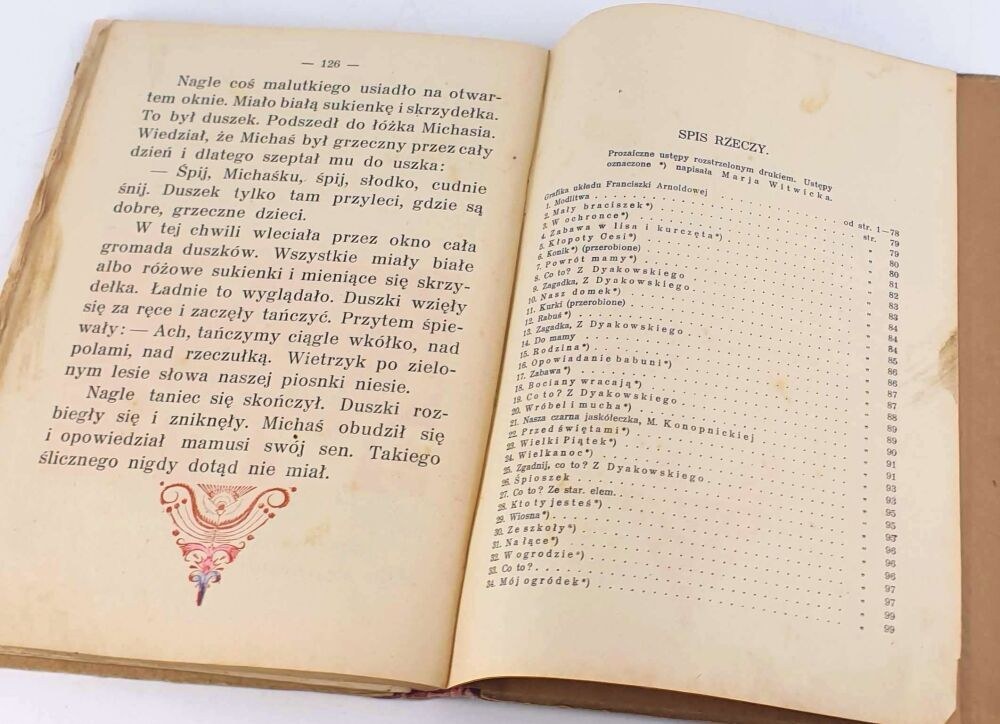 — 126 —
Nagle coś malutkiego usiadło na otwar-
tem oknie. Miało białą sukienkę i skrzydełka.
To był duszek. Podszedł do łóżka Michasia.
Wiedział, że Michaś był grzeczny przez cały
dzień i dlatego szeptał mu do uszka:
— Śpij, Michaśku, śpij, słodko, cudnie
śnij. Duszek tylko tam przyleci, gdzie są
dobre, grzeczne dzieci.
W tej chwili wleciała przez okno cała
gromada duszków. Wszystkie miały białe
albo różowe sukienki i mieniące się skrzy-
dełka. Ładnie to wyglądało. Duszki wzięły
się za ręce i zaczęły tańczyć. Przytem śpie-
wały: — Ach, tańczymy ciągle wkółko, nad
polami, nad rzeczułką. Wietrzyk po zielo-
nym lesie słowa naszej piosnki niesie.
Nagle taniec się skończył. Duszki roz-
biegły się i zniknęły. Michaś obudził się
i opowiedział mamusi swój sen. Takiego
ślicznego nigdy dotąd nie miał.
SPIS RZECZY.
Prozaiczne ustępy rozstrzelonym drukiem. Ustępy
oznaczone *) napisała Marja Witwicka.
Grafika układu Franciszki Arnoldowej od str. 1—78
1. Modlitwa str. 79
2. Mały braciszek*) " 79
3. W ochronce*) " 80
4. Zabawa w lisa i kurczęta*) " 80
5. Kłopoty Cesi*) " 81
6. Konik*) (przerobione) " 82
7. Powrót mamy*) " 83
8. Co to? Z Dyakowskiego " 83
9. Zagadka, Z Dyakowskiego " 84
10. Nasz domek*) " 84
11. Kurki (przerobione) " 84
12. Rabuś*) " 85
13. Zagadka, Z Dyakowskiego " 86
14. Do mamy " 86
15. Rodzina*) " 87
16. Opowiadanie babuni*) " 87
17. Zabawa*) " 88
18. Bociany wracają*) " 89
19. Co to? Z Dyakowskiego " 89
20. Wróbel i mucha*) " 90
21. Nasza czarna jaskółeczka, M. Konopnickiej " 91
22. Przed świętami*) " 91
23. Wielki Piątek*) " 93
24. Wielkanoc*) " 93
25. Zgadnij, co to? Z Dyakowskiego " 95
26. Śpioszek " 95
27. Co to? Ze star. elem. " 95
28. Kto ty jesteś*) " 96
29. Wiosna*) " 96
30. Ze szkoły*) " 96
31. Na łące*) " 97
32. W ogrodzie*) " 97
33. Co to? " 99
34. Mój ogródek*) " 99